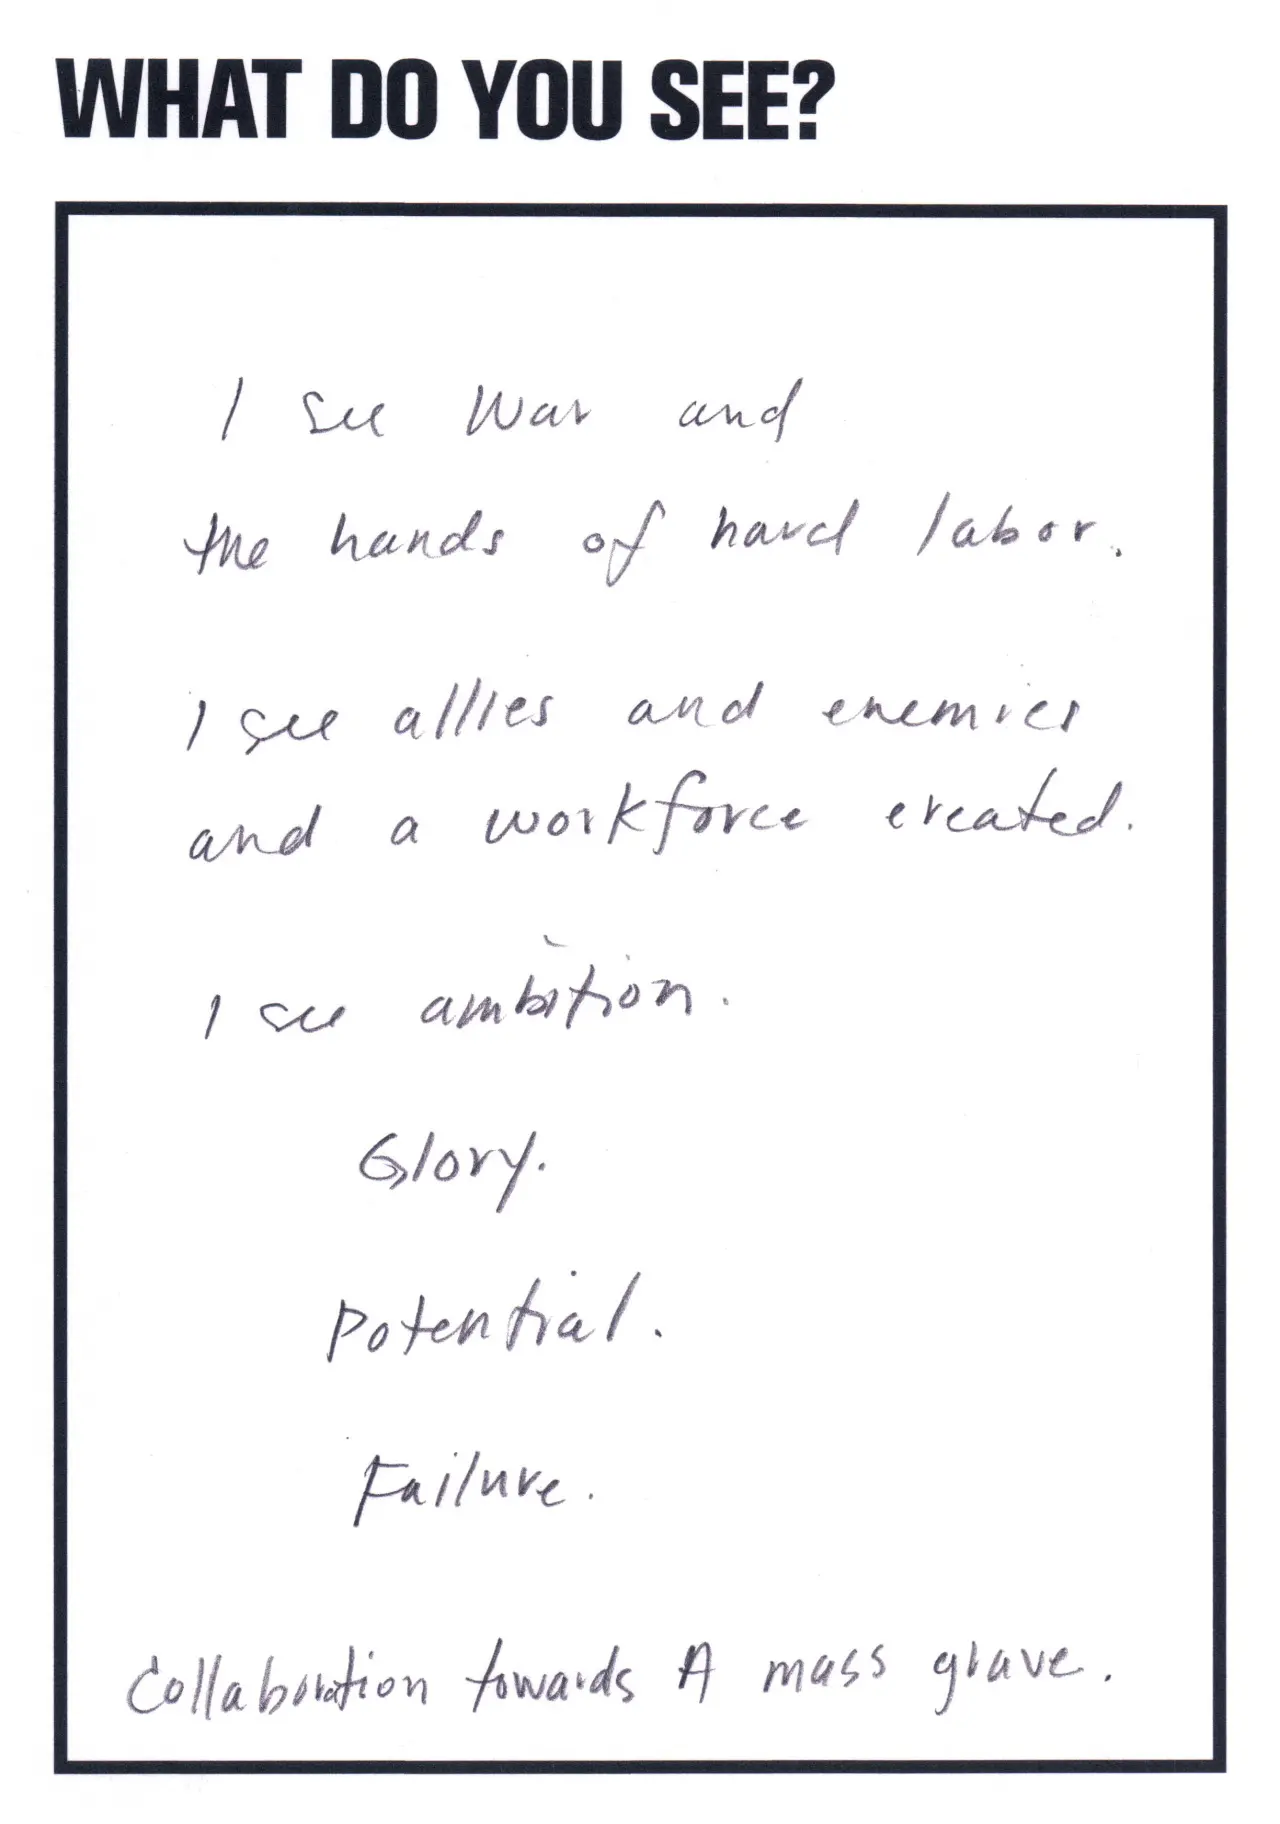 WHAT DO YOU SEE?
I see war and
the hands of hard labor.
I see allies and enemies
and a workforce created.
I see ambition.
Glory.
Potential.
Failure.
Collaboration towards A mass grave.